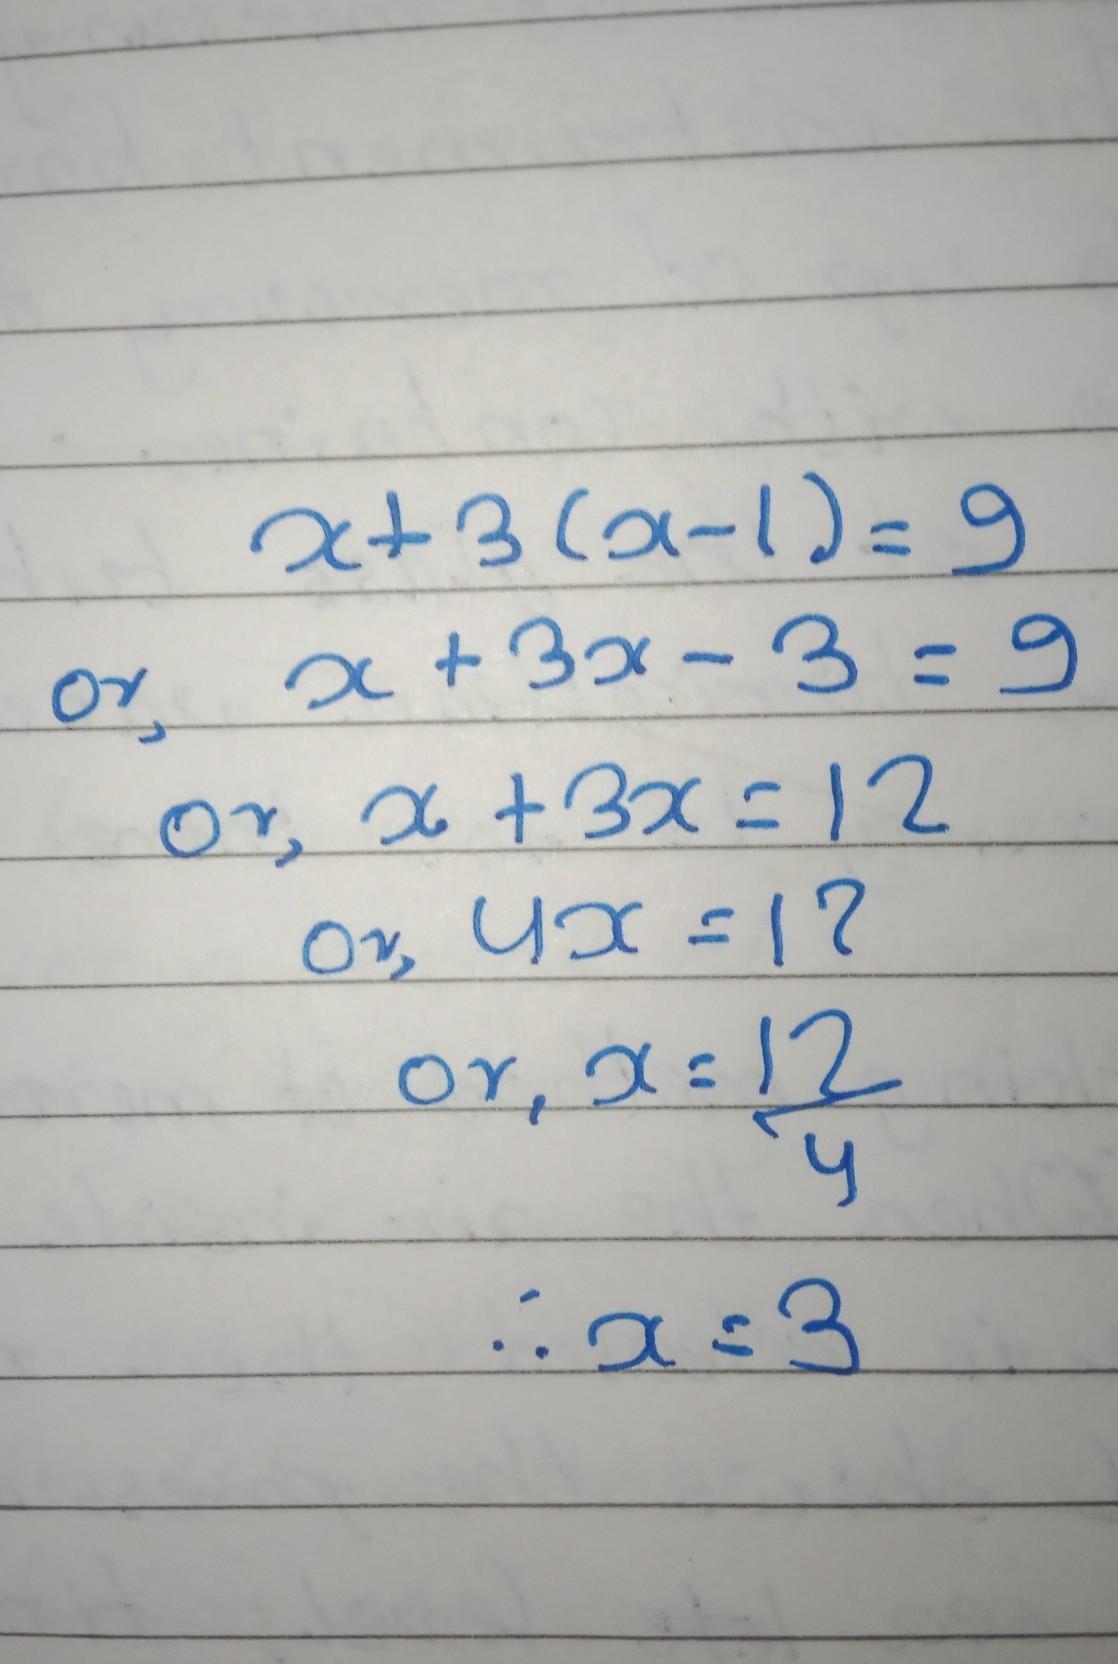 x + 3 (x - 1) = 9
or, x + 3x - 3 = 9
or, x + 3x = 12
or, 4x = 12
or, x = 12/4
∴ x = 3